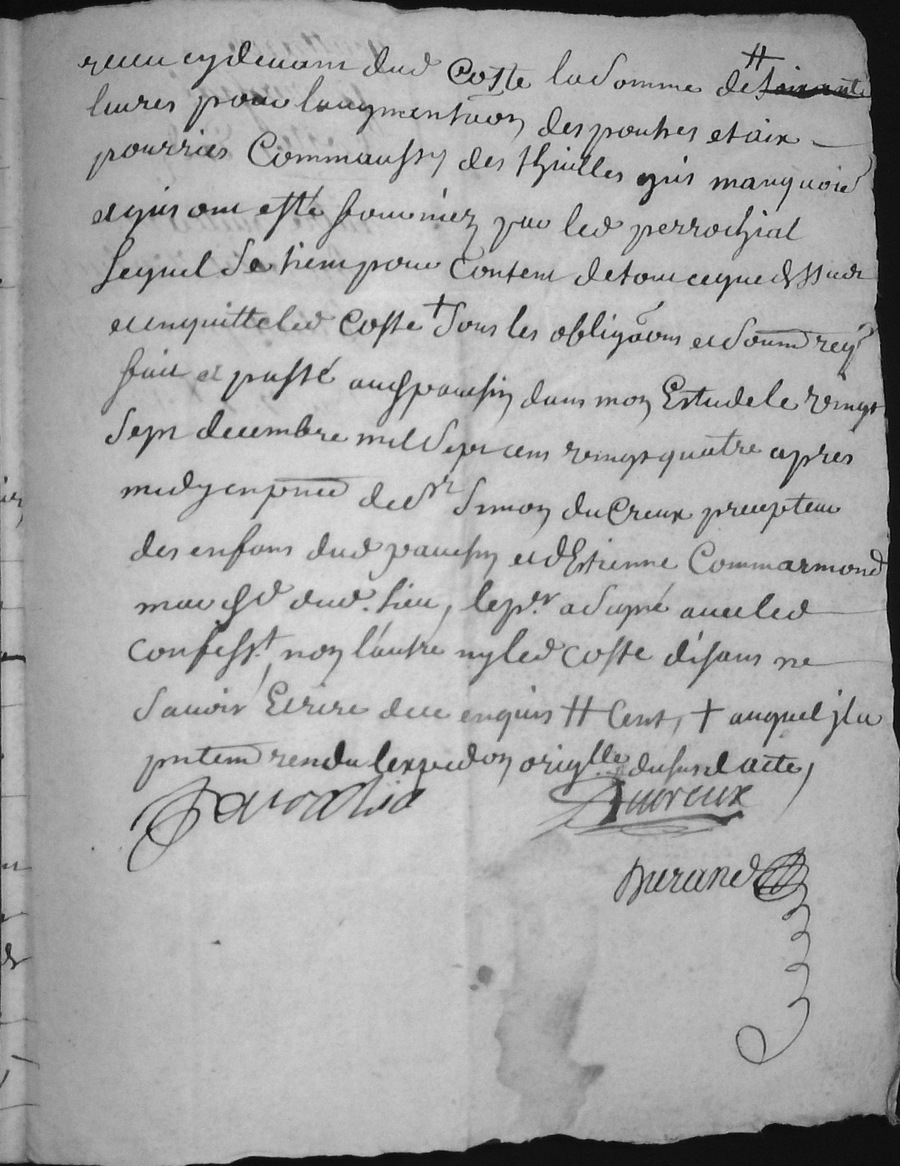 receu cydevant dud Coste la Somme de ⧺ soixante
livres pour laugmentaon des pouttres et aix
pourries Comm aussy des thuilles quis manquoie
et quis ont esté fournies par led perrochial
Lequel Se tient pour Content de tout ce que dessus
et en quitte led Coste † Sous les obligaons et Soumd
fait et passé aud pausin dans mon Estude le vingt
Sept decembre mil Sept cens vingt quatre apres
midy en pnce de Sr Simon du Creux precepteur
des enfans dud pausin et d'Estienne Commarmond
marchd dud. lieu, le pr. a Signé avec led
Confesst, non l'autre ny led Coste disans ne
Savoir Ecrire de ce enquis ⧺ Cent, † auquel jl a
pntemt rendu lexpedon origlle dususd acte,
Ducreux
Durand